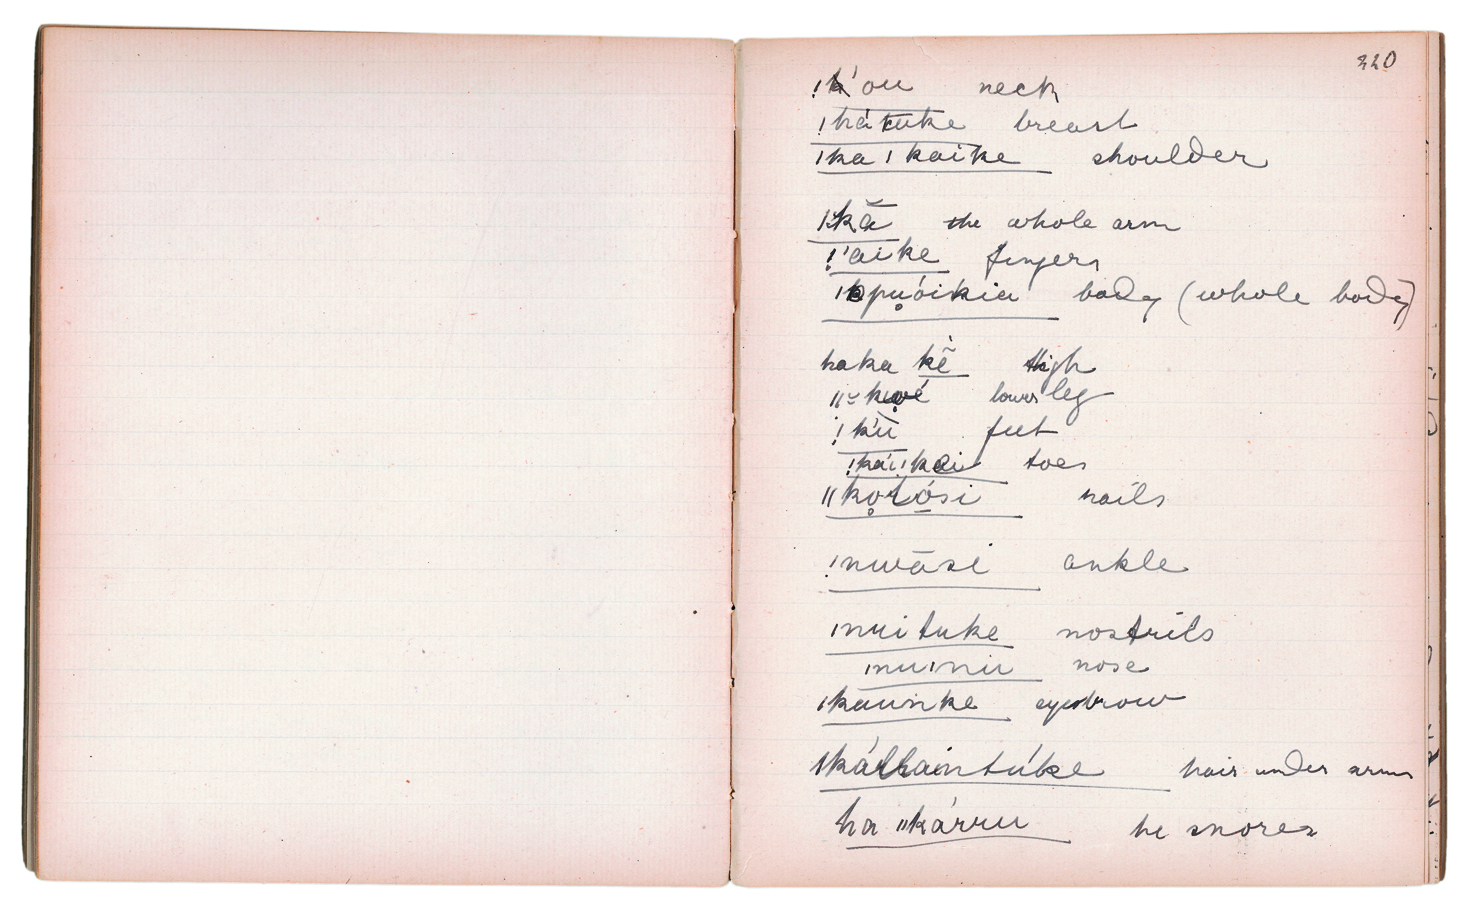 220
!k'ou neck
!hátuke breast
ǀka ǀ kaike shoulder
ǀkã the whole arm
!'aike fingers
body (whole body)
haka kè̃ thigh
lower leg
!k'ù feet
!kái!kai toes
ǁkǫrǫ́si nails
!nwāsi ankle
ǀnuituke nostrils
ǀnuǀnu nose
ǀkauinke eyebrow
hair under arms
ha ǁkárru he snores